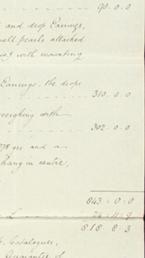 90 . 0 . 0
and drop Earrings,
small pearls attached
with mounting
Earrings. the drops
310 . 0 . 0
weighing with
302 . 0 . 0
and a
hang in centre,
843 . 0 . 0
818 . 8 . 3
Catalogues,